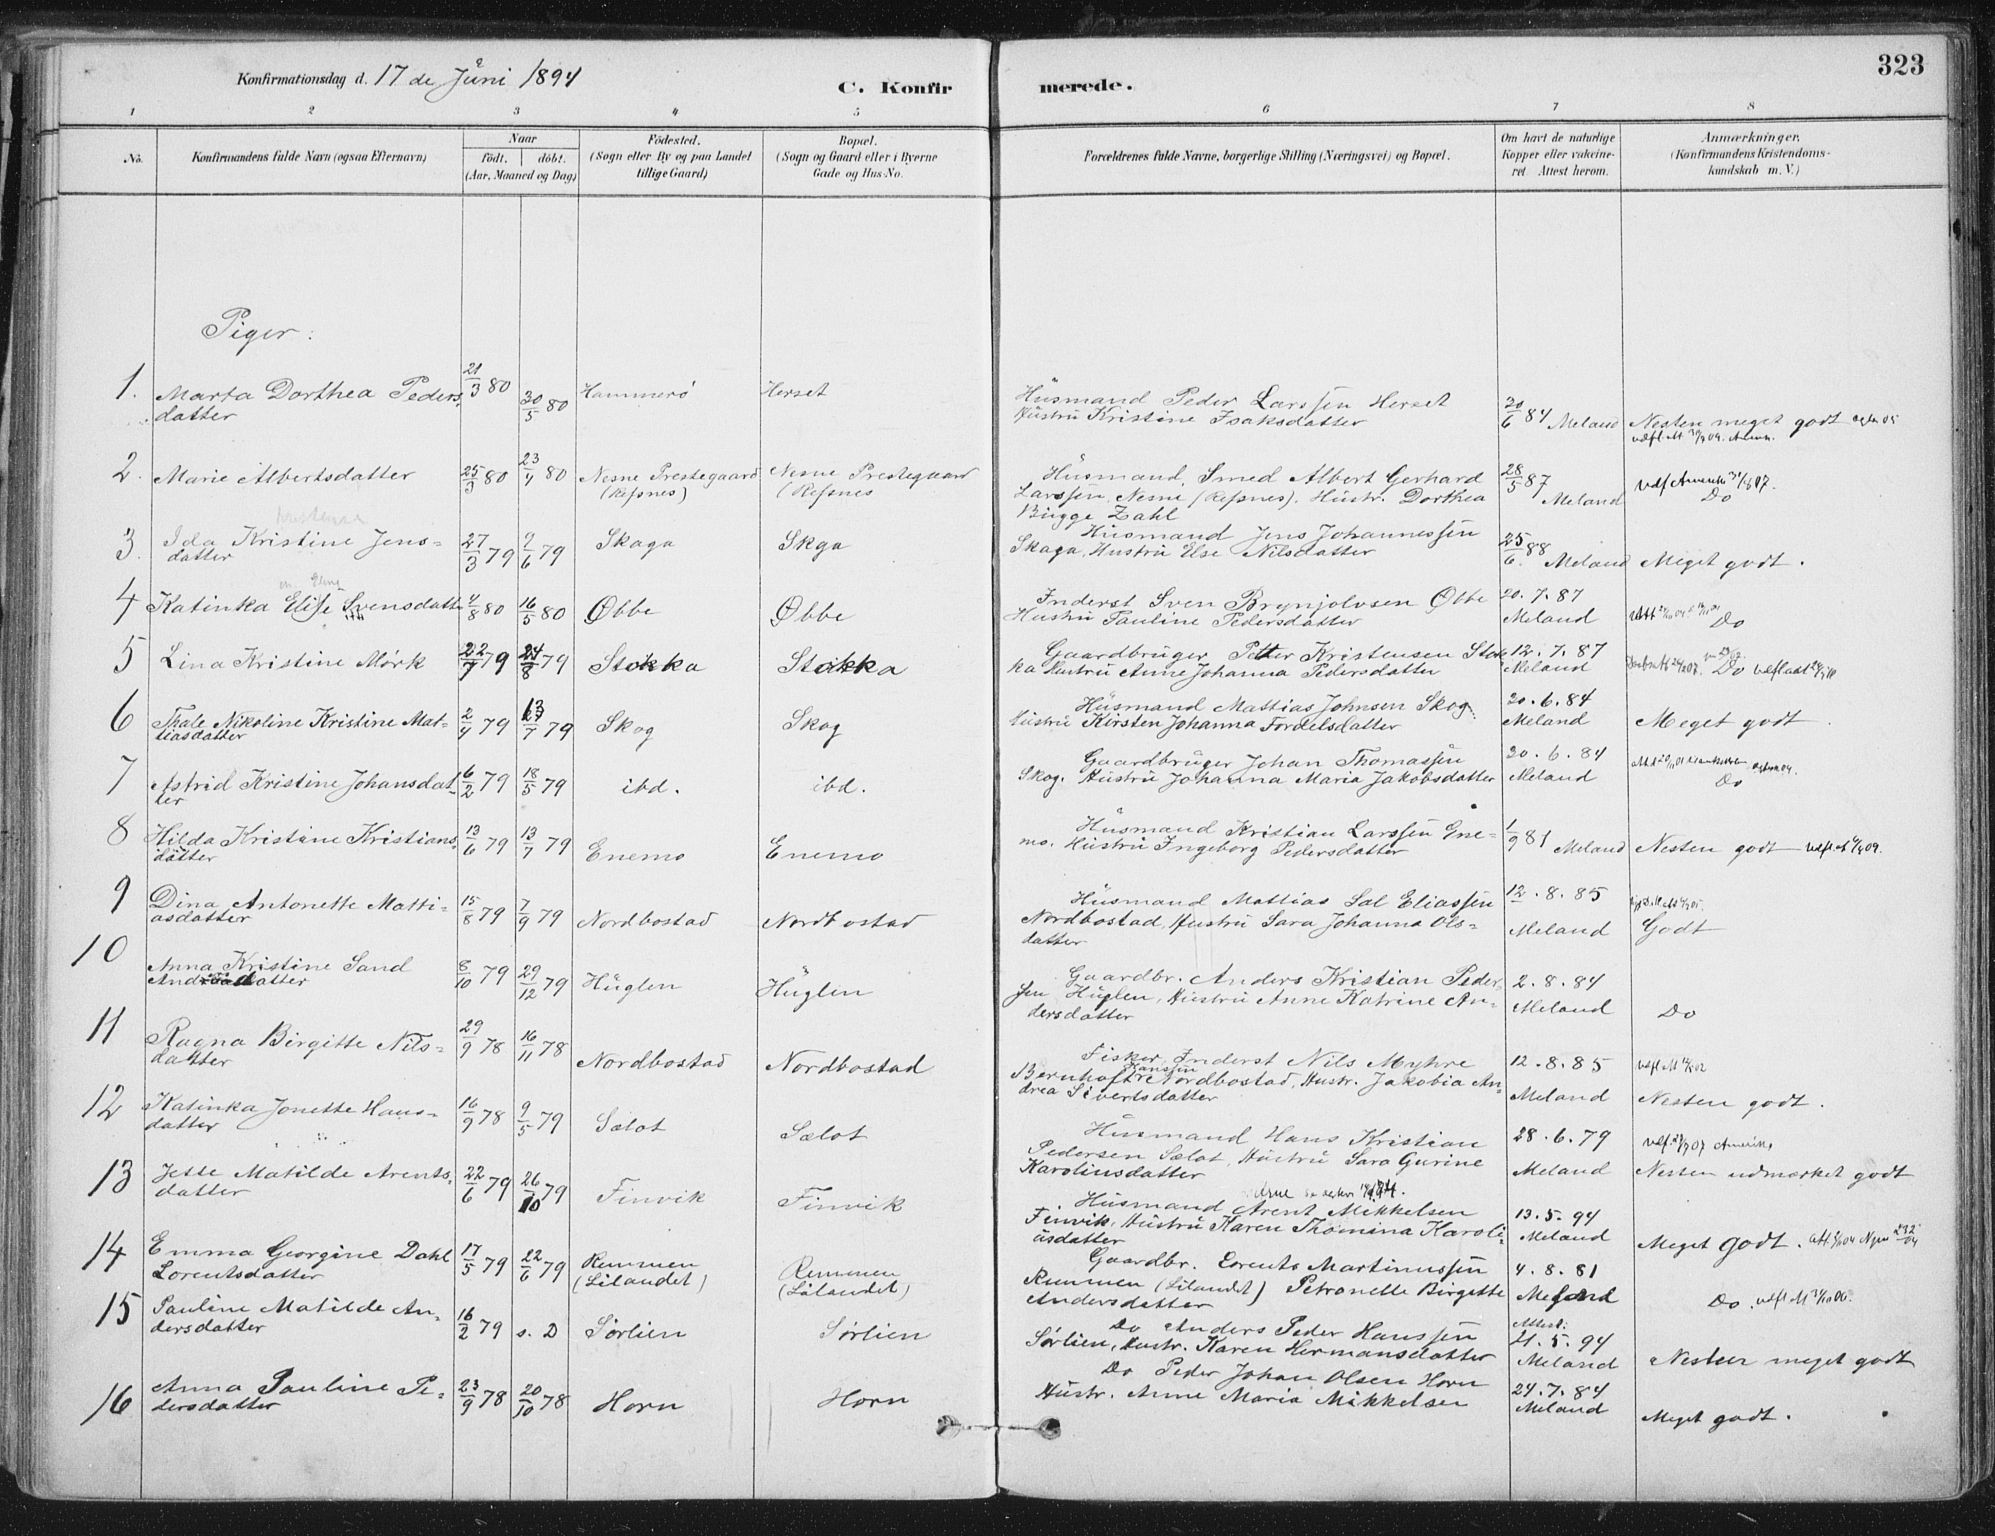 Konfirmationsdag d. 17 de Juni 1894
C. Konfir merede. 323
1 2 3 4 5 6 7 8
No. Konfirmandens fulde Navn (ogsaa Efternavn) Naar Födt. döbt. (Aar, Maaned og Dag) Födested. (Sogn eller By og paa Landet tillige Gaard) Bopæl. (Sogn og Gaard eller i Byerne Gade og Hus-No. Forældrenes fulde Navne, borgerlige Stilling (Næringsvei) og Bopæl. Om havt de naturlige Kopper eller vakcineret Attest herom. Anmærkninger. (Konfirmandens Kristendomskundskab m. V.)
Piger:
1. Marta Dorthea Pedersdatter 21/3 80 30/5 80 Hammerö Herset Husmand Peder Larssen Herset Hustru Kristine Isaksdatter 20/6 84 Meland Nesten meget godt
2. Marie Albertsdatter 25/3 80 23/4 80 Nesne Prestegaard (Refsnes) Nesne Prestegaard (Refsnes Husmand, Smed Albert Gerhard Larssen, Nesne (Refsnes). Hustr. Dorthea Bugge Zahl 28/5 87 Meland Do
3. Ida Kristine Jensdatter 27/3 79 2/6 79 Skaga Skga Husmand Jens Johannessen Skaga, Hustru Else Nilsdatter 25/6 88 Meland Meget godt.
4 Katinka Elise Svensdatter 4/8 80 16/5 80 Øbbe Øbbe Inderst Sven Brynjolvsen Øbbe Hustru Pauline Pedersdatter 20.7.87 Meland Do
5 Lina Kristine Mörk 22/7 79 24/8 79 Stokka Stokka Gaardbruger Petter Kristensen Stokka Hustru Anne Johanna Pedersdatter 12.7.87 Meland Do
6 Thale Nikoline Kristine Mattiasdatter 2/4 79 13/7 79 Skog Skog Husmand Mattias Johnsen Skog. Hustru Kirsten Johanna Fordelsdatter 20.6.84 Meland Meget godt.
7 Astrid Kristine Johansdatter 6/2 79 18/5 79 ibd. ibd. Gaardbruger Johan Thomassen Skog. Hustru Johanna Maria Jakobsdatter 20.6.84 Meland Do
8 Hilda Kristine Kristiansdatter 13/6 79 13/7 79 Enemo Enemo Husmand Kristian Larssen Enemo. Hustru Ingeborg Pedersdatter 1/9 81 Meland Nesten godt
9 Dina Antonette Mattiasdatter 15/8 79 7/9 79 Nordbostad Nordbostad Husmand Mattias Sal Eliassen Nordbostad, Hustru Sara Johanna Olsdatter 12.8.85 Meland Godt
10 Anna Kristine Sand 8/10 79 29/12 79 Huglen Huglen Gaardbr. Anders Kristian Pedersen Huglen, Hustru Anne Katrine Andersdatter 2.8.84 Meland Do
11 Ragna Birgitte Nilsdatter 29/9 78 16/11 78 Nordbostad Nordbostad Fisker, Inderst Nils Myhre Bernhoft Hanssen Nordbostad, Hustr. Jakobia Andrea Sivertsdatter 12.8.85 Meland Nesten godt.
12 Katinka Jonette Hansdatter 16/9 78 9/5 79 Sælot Sælot Husmand Hans Kristian Pedersen Sælot, Hustru Sara Gurine Karoliusdatter 28.6.79 Meland Nesten udmærket godt
13 Jette Matilde Arentsdatter 22/6 79 26/10 79 Finvik Finvik Husmand Arent Mikkelsen Finvik, Hustru Karen Thomina Karoliusdatter 13.5.94 Meland Meget godt.
14 Emma Georgine Dahl Lorentsdatter 17/5 79 22/6 79 Remmen (Lilandet) Remmen (Lilandet) Gaardbr. Lorents Martinussen Remmen (Lilandet) Petronelle Birgitte Andersdatter 4.8.81 Meland Do
15 Pauline Matilde Andersdatter 16/2 79 s. D Sörlien Sörlien Do Anders Peder Hanssen Sörlien, Hustr. Karen Hermansdatter Attest: 21.5.94 Meland Nesten meget godt
16 Anna Pauline Pedersdatter 23/9 78 20/10 78 Horn Horn Do Peder Johan Olsen Horn Hustr. Anne Maria Mikkelsen 24.7.84 Meland Meget godt.